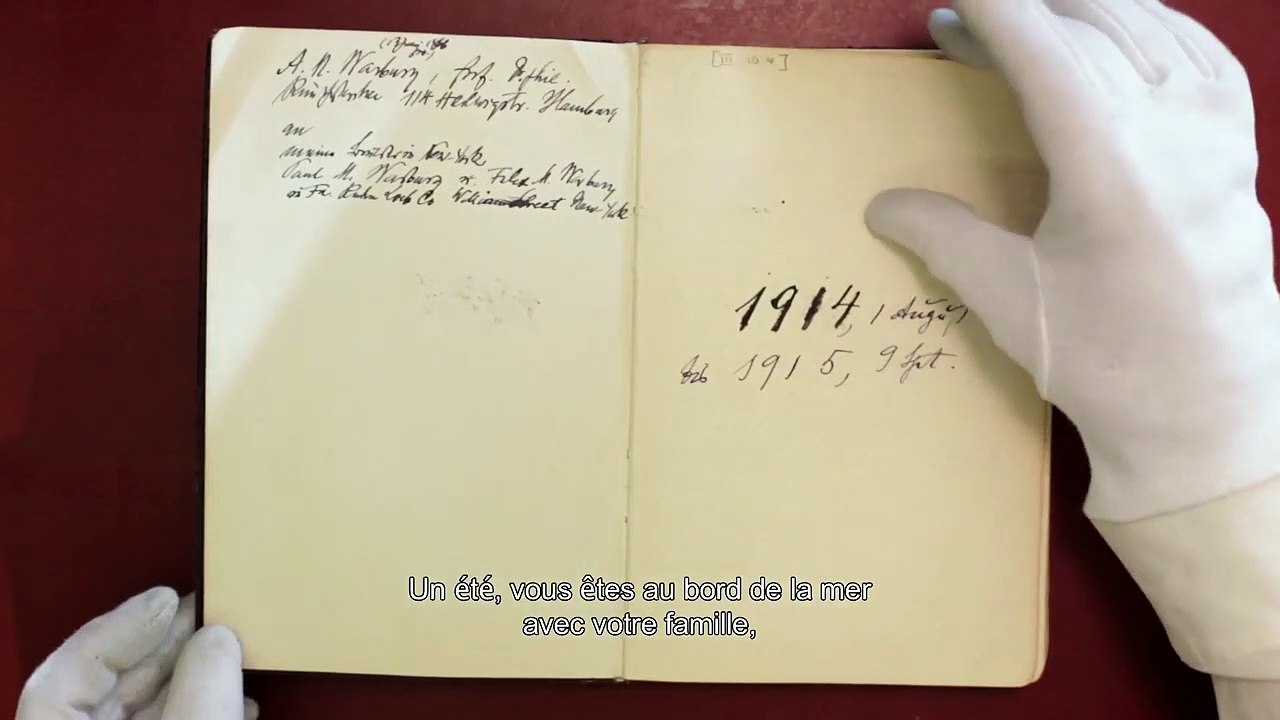 A. M. Warburg, Prof. D. phil.
114 Hedwigstr. Hamburg
an
meine New-York
Paul M. Warburg u. Felix M. Warburg
Fa. Kuhn Loeb Co William Street New York
[III 10 4]
1914, 1 August
bis 1915, 9 Spt.
Un été, vous êtes au bord de la mer
avec votre famille,